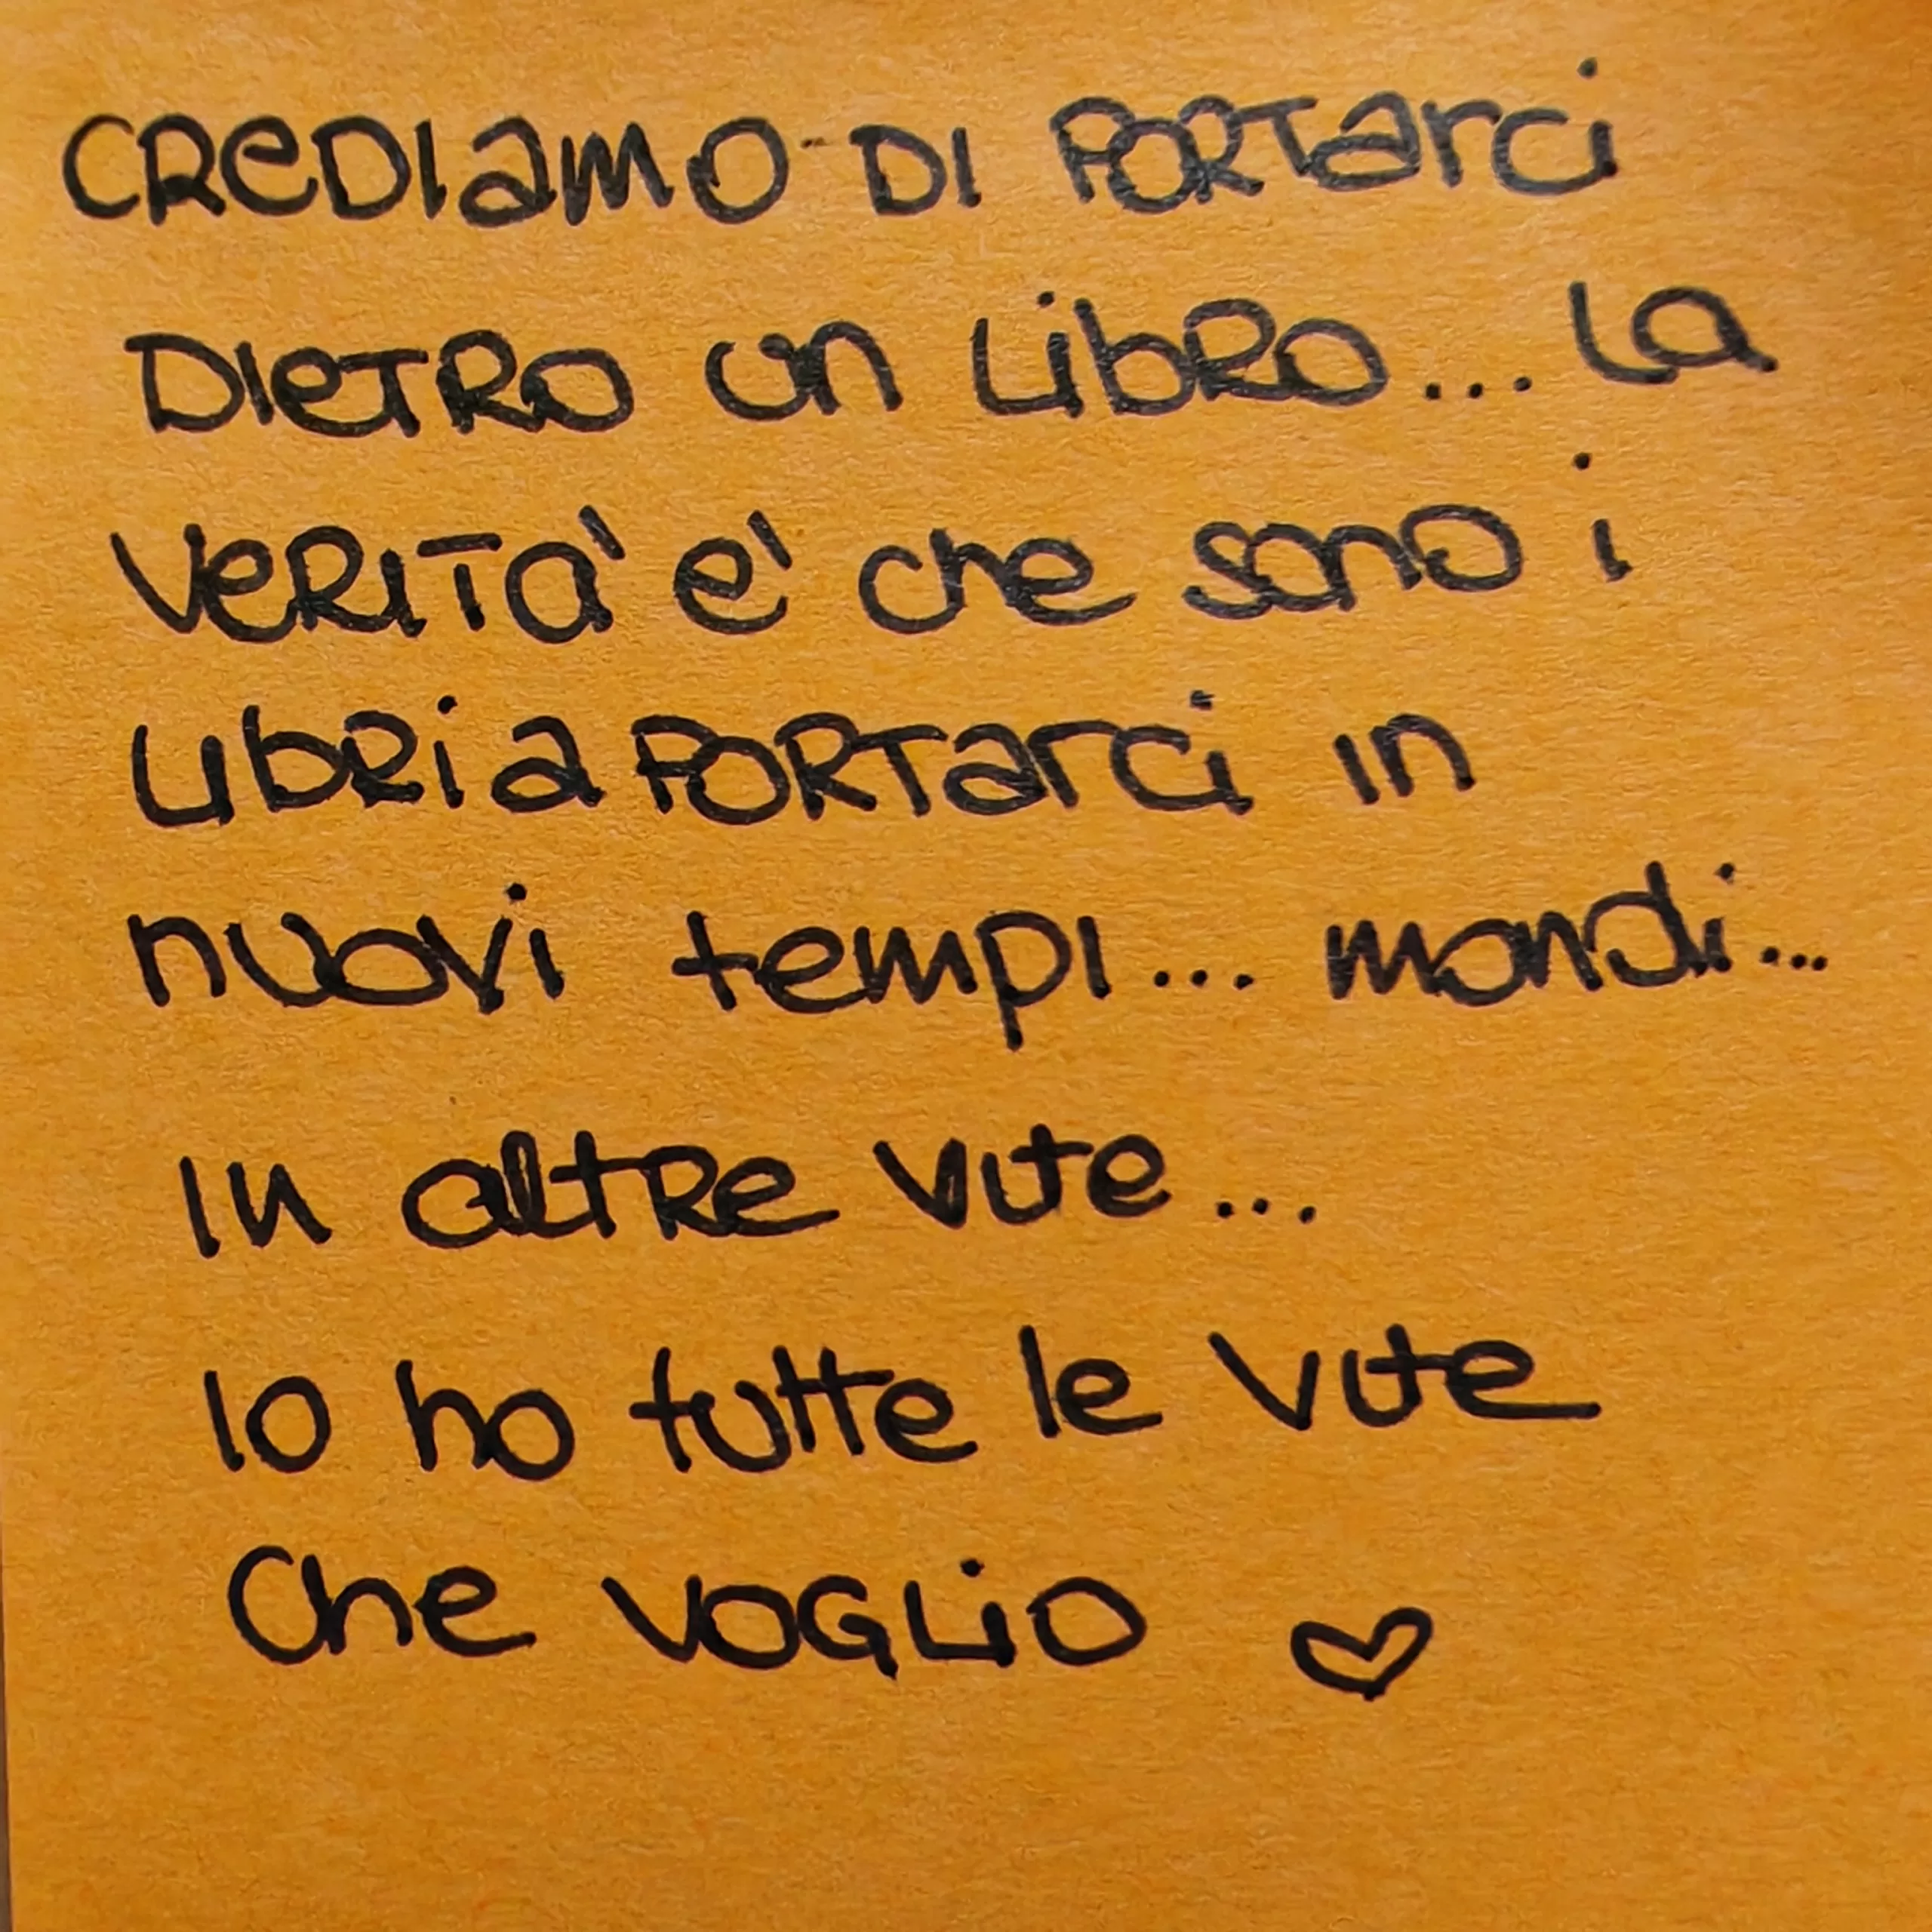 CREDIAMO DI PORTARCI
DIETRO UN LIBRO... LA
VERITA' E' CHE SONO I
LIBRI A PORTARCI IN
nuovi tempi... mondi...
IN ALTRE VITE...
IO ho tutte le vite
Che VOGLIO ♡